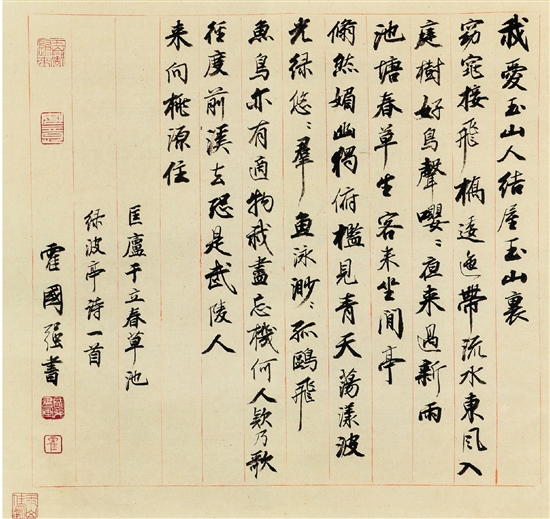 我愛玉山人結屋玉山裏
窈窕接飛橋逶迤帶流水東風入
庭樹好鳥聲嚶〻夜来過新雨
池塘春草生客来坐閒亭
翛然媚幽獨俯檻見青天蕩漾波
光绿悠〻羣魚泳渺〻孤鷗飛
魚鳥亦有適物我盡忘機何人欵乃歌
徑度前溪去恐是武陵人
来向桃源住
匡廬于立春草池
绿波亭诗一首
霍國强書
霍